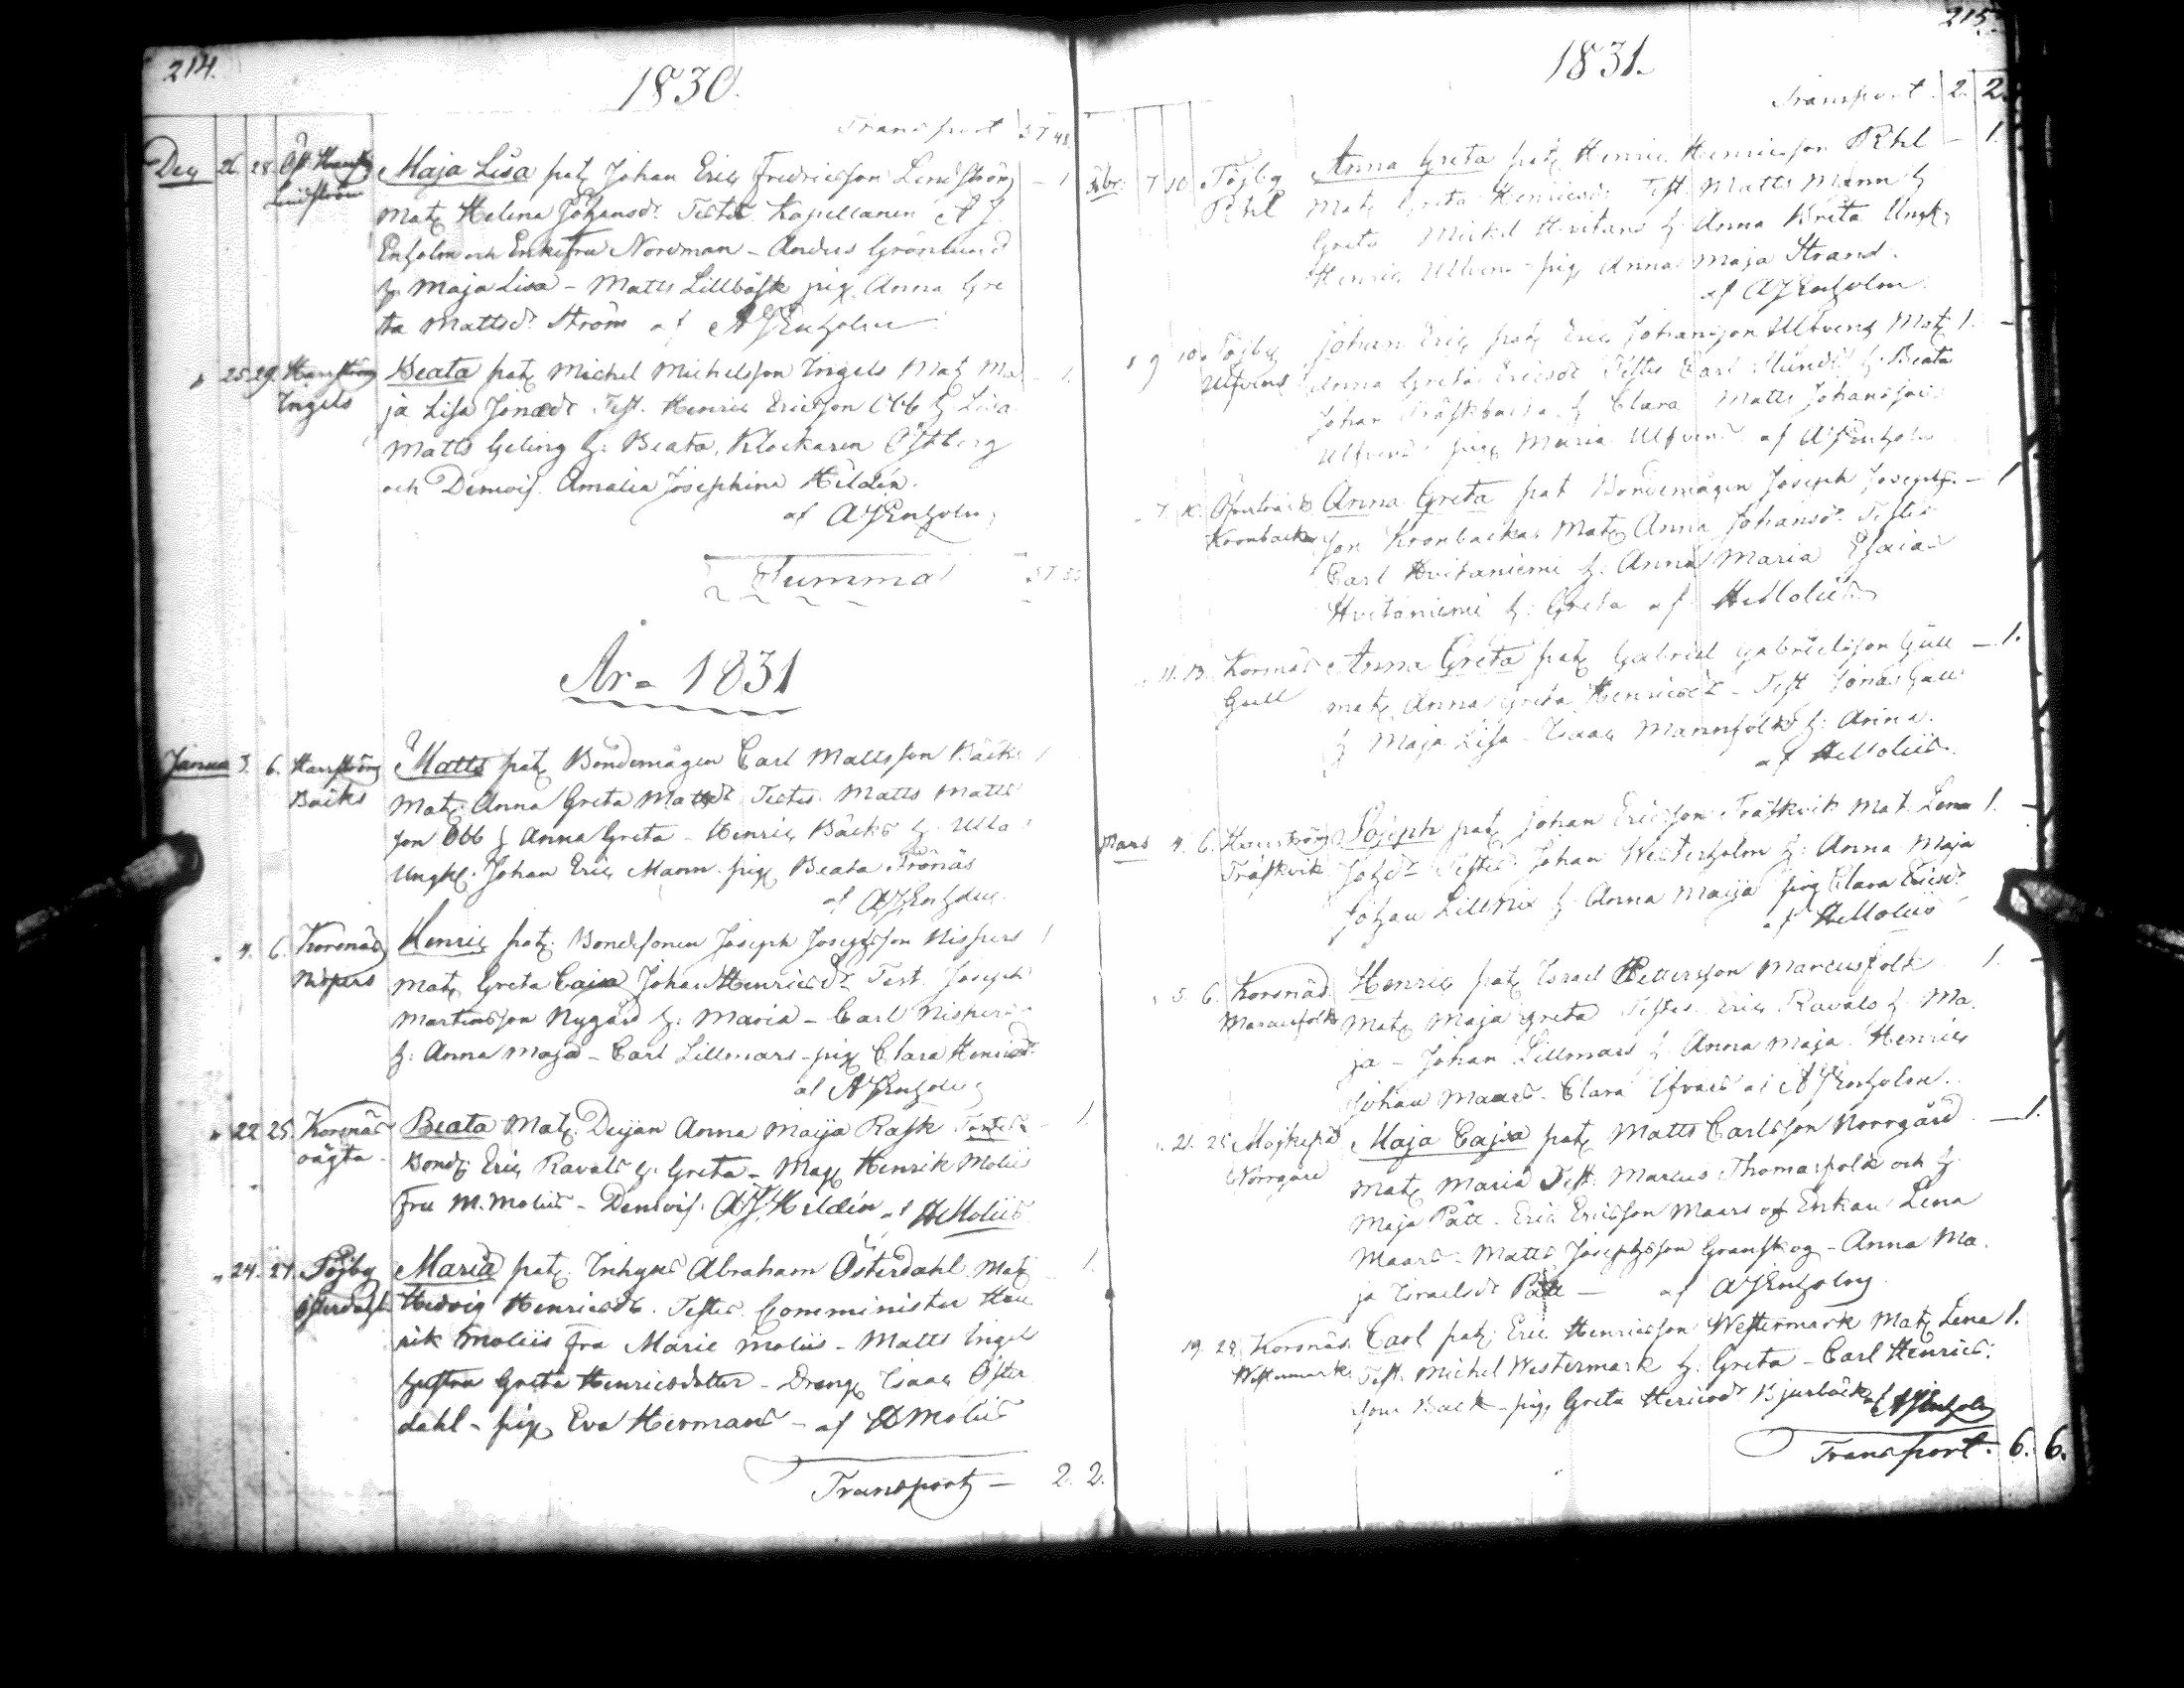 214.
1830.
Transport 57 48
Dec 26 28 Öf. Harrström Maja Lisa pat. Johan Eric Fredricsson Lindström – 1
Lindström Mat. Helena Johansdr Testes Kapellanen A J
Enholm och Enkefru Nordman – Anders Grönlund
h. Maja Lisa – Matts Lillbäsk pig. Anna Gre
ta Mattsdr Ström af A J Enholm
" 25 29 Harrström Beata pat. Michel Michelsson Ingels Mat. Ma – 1.
Ingels ja Lisa Jonædr Test. Henric Ericsson Ebb h Lisa
Matts Geling h: Beata, Klockaren Östberg
och Demois. Amalia Josephina Hildén.
af A J Enholm
Summa 57
År – 1831
Januar 3. 6. Harrström Matts pat. Bondemågen Carl Mattsson Bäcks 1
Bäcks Mat. Anna Greta Mattsdr Testes Matts Matts
son Ebb h Anna Greta – Henric Bäcks h: Ulla
Ungk. Johan Eric Mann pig. Beata Frönäs
af A J Enholm
" 4. 6. Korsnäs Henric pat. Bondesonen Joseph Josephsson Nispers 1
Nispers Mat. Greta Cajsa Johan Henricsdr Test. Joseph
Martinsson Nygård h: Maria – Carl Nispers
h: Anna Maja – Carl Lillmars – pig. Clara Henricsdr
af A J Enholm
" 22 25. Korsnäs Beata Mat. Deijan Anna Maija Rask Testes – 1
oägta – Bond. Eric Ravals h. Greta – Mag. Henrik Moliis
Fru M. Moliis – Demois. A J. Hildén af H Moliis
" 24. 27. Töjby Maria pat. Inhyses Abraham Österdahl Mat. – 1.
Österdahl Hedvig Henricsdr. Testes Comminister Hen
rik Moliis Fru Marie Moliis – Matts Ingel
hustru Greta Henricsdotter – Dreng. Isaac Öster
dahl – pig. Eva Hermans – af H Moliis
Transport – 2. 2.
215.
1831.
Transport 2. 2.
Febr: 7 10 Töjby Anna Greta pat. Henric Henricsson Rhl – 1.
Rhl Mat. Greta Henricsdr Test. Matts Mann h
Greta Michel Hvitans h. Anna Greta Ungk.
Henric Ulfvens – pig. Anna Maja Strand.
af A J Enholm
" 9 10. Töjby Johan Eric pat. Eric Johansson Ulfvens Mat. 1. –
Ulfvens Anna Greta Ericsdr Testes Carl h: Beata
Johan Träskbacka h Clara Matts Johansson
Ulfvens pig. Maria Ulfvens af A J Enholm
" 7. 10. Öfverträsk Anna Greta pat Bondemågen Joseph Josephs. – 1
Kronbacka son Kronbackas Mat. Anna Johansdr Testes
Carl Hvitaniemi h. Anna Maria Esaias
Hvitaniemi h: Greta af H Moliis
" 11. 13. Korsnäs Anna Greta pat. Gabriel Gabrielsson Gull – 1.
Gull Mat. Anna Greta Henricsdr – Test Jonas Gull
h Maja Lisa – Isaac Mannfolk h: Anna.
af H Moliis.
Mars 4. 6. Harrström Joseph pat. Johan Ericsson Träskvik Mat. Lena 1. –
Träskvik Joh.dr Testes Johan Westerholm h: Anna Maja
Johan Lillnix h Anna Maija pig Clara Ericsdr
af H Moliis
" 5. 6. Korsnäs Henric pat. Israel Pettersson Marcusfolk 1. –
Marcusfolk Mat. Maja Greta Testes Eric Ravals h. Ma
ja – Johan Lillmars h. Anna Maja. Henric
Johan Maars – Clara af A J Enholm.
" 21. 25 Mojkepä Maja Cajsa pat. Matts Carlsson Norrgård – 1.
Norrgård Mat. Maria Test. Marcus Thomasfolk och h.
Maja Påtte – Eric Ericsson Maars och Enkan Lena
Maars – Matts Josephsson Granskog – Anna Ma
ja Israelsdr – af A J Enholm
19. 28. Korsnäs Carl pat. Eric Henricsson Westermark Mat. Lena 1.
Westermark Test. Michel Westermark h: Greta – Carl Henrics:
son Back – pig. Greta Hericsdr Bjurbäck af A J Enholm
Transport. 6. 6.